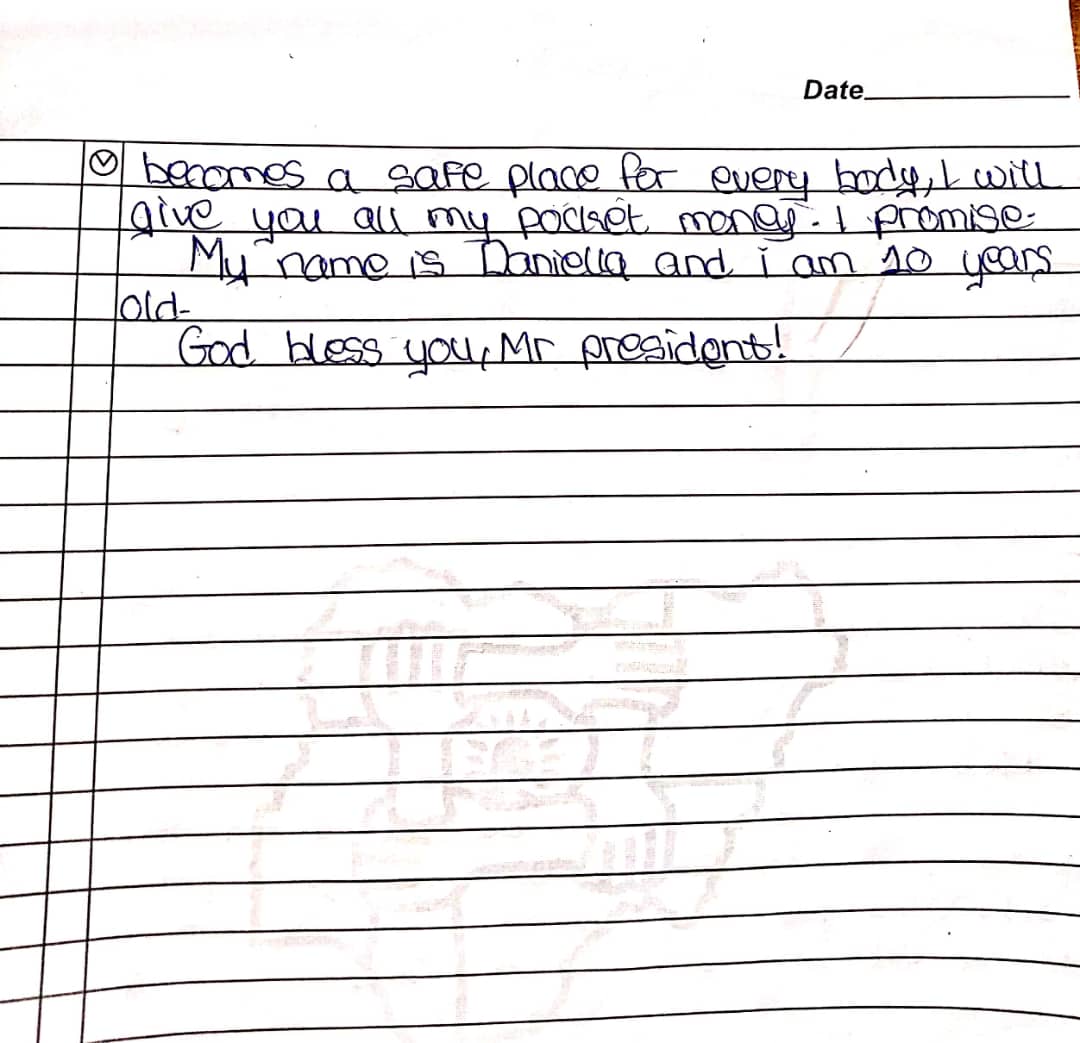 Date
Ⓥ becomes a safe place for every body, I will
give you all my pocket money. I promise.
My name is Daniella and i am 10 years
old.
God bless you, Mr president!